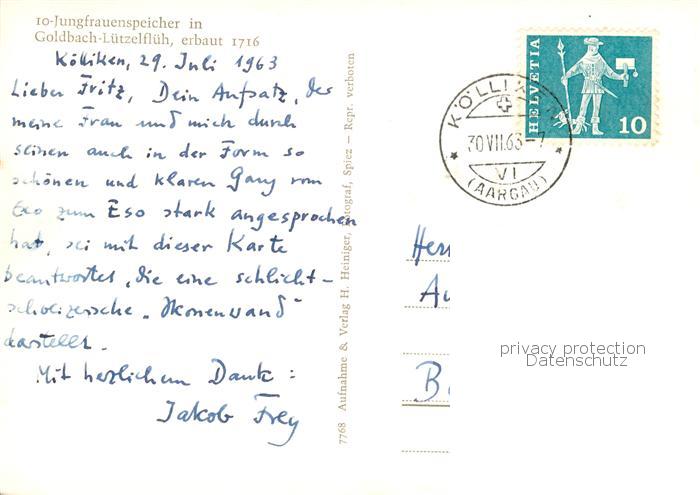 10-Jungfrauenspeicher in
Goldbach-Lützelflüh, erbaut 1716
Kölliken, 29. Juli 1963
Lieber Fritz, Dein Aufsatz, der
meine Frau und mich durch
seinen auch in der Form so
schönen und klaren Gang vom
Exo zum Eso stark angesprochen
hat, sei mit dieser Karte
beantwortet, die eine schlicht-
schweizerische "Ikonenwand"
darstellt.
Mit herzlichem Dank:
Jakob Frey
7768 Aufnahme & Verlag H. Heiniger, Fotograf, Spiez – Repr. verboten
HELVETIA
10
KÖLLIKEN
30.VII.63-7
VI
(AARGAU)
Herr
privacy protection
Datenschutz